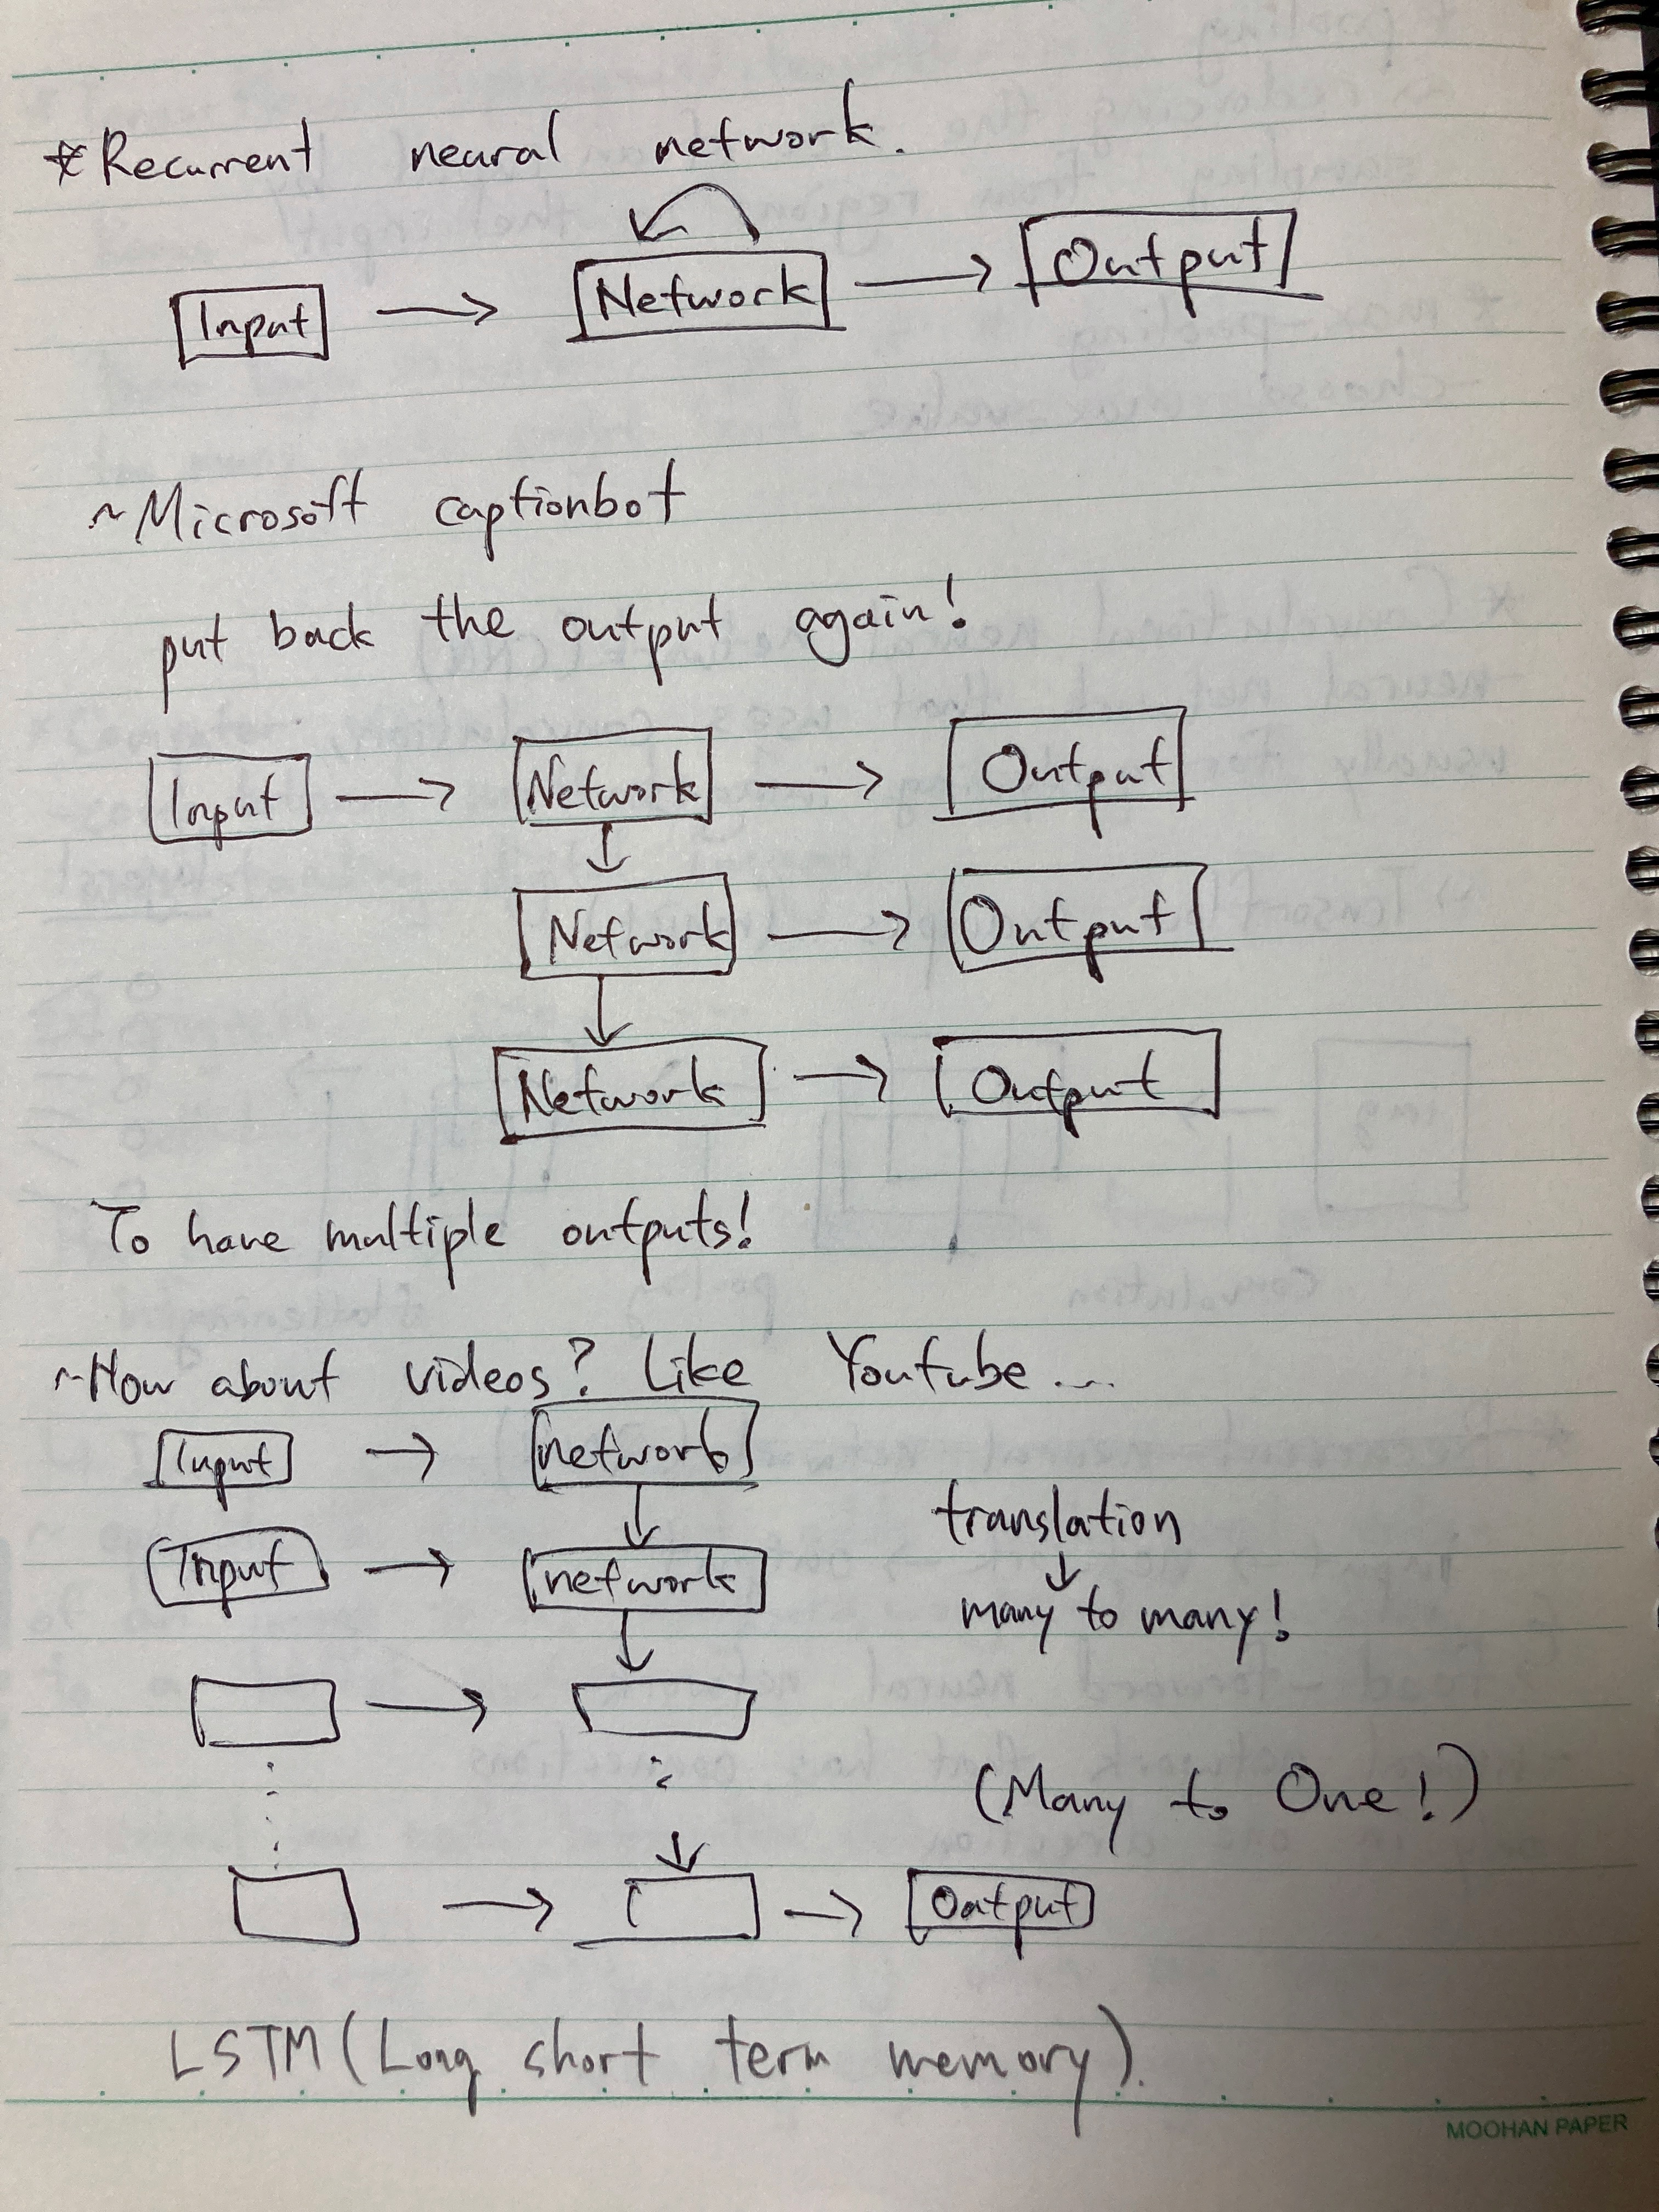 *Recurrent neural network.
Input → Network → Output
~Microsoft captionbot
put back the output again!
Input → Network → Output
↓
Network → Output
↓
Network → Output
To have multiple outputs!
~How about videos? Like Youtube....
Input → network
↓
translation
Input → network
↓
many to many!
↓
→
(Many to One!)
↓
→ → Output
LSTM (Long short term memory).
MOOHAN PAPER